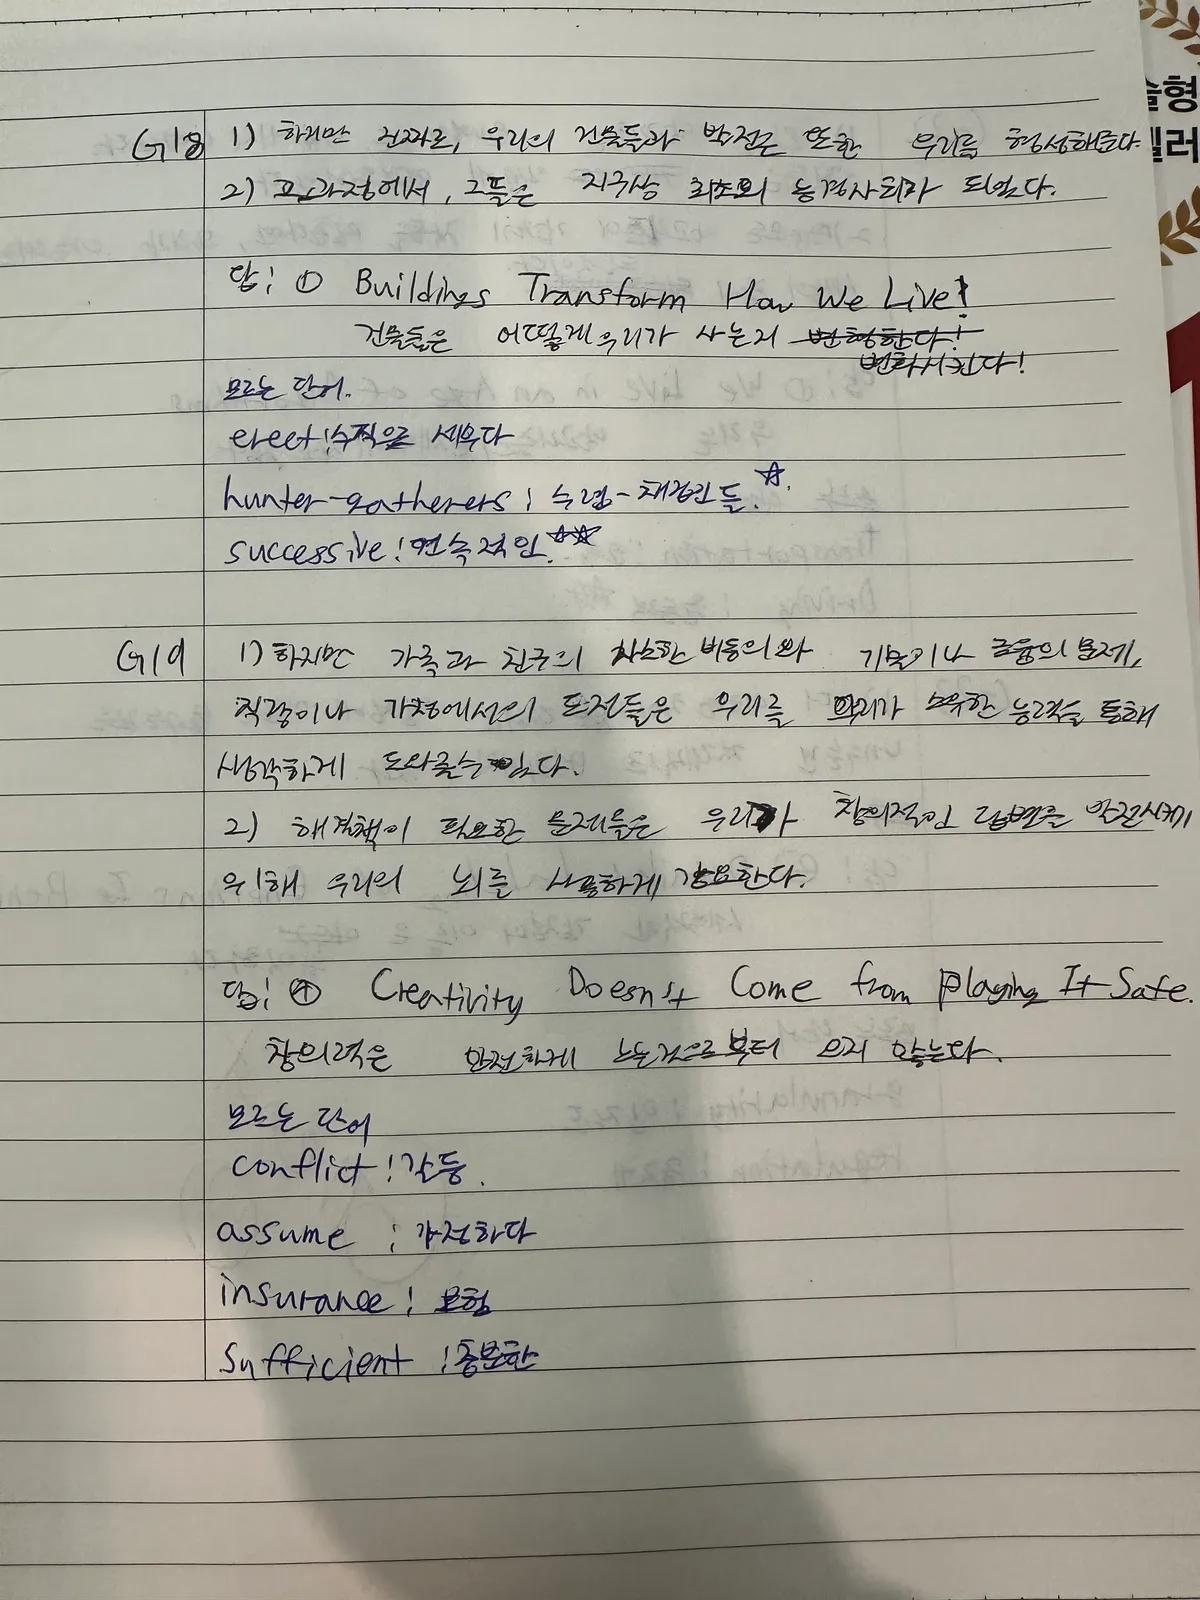 술형
킬러
G18 1) 하지만 진짜로, 우리의 건물들과 발전은 또한 우리를 형성해준다.
2) 그 과정에서, 그들은 지구상 최초의 농경사회가 되었다.
답: ① Buildings Transform How We Live!
건물들은 어떻게 우리가 사는지 변형한다!
변화시킨다!
모르는 단어.
erect: 수직으로 세우다
hunter-gatherers: 수렵-채집인들.☆.
successive: 연속적인.☆☆
G19 1) 하지만 가족과 친구의 사소한 비동의와 기술이나 금융의 문제,
직장이나 가정에서의 도전들은 우리를 우리가 소유한 능력을 통해
생각하게 도와줄 수 있다.
2) 해결책이 필요한 문제들은 우리가 창의적인 답변을 발전시키기
위해 우리의 뇌를 사용하게 강요한다.
답: ④ Creativity Doesn't Come from Playing It Safe.
창의력은 안전하게 노는 것으로부터 오지 않는다.
모르는 단어
conflict: 갈등.
assume: 가정하다
insurance: 보험
sufficient: 충분한